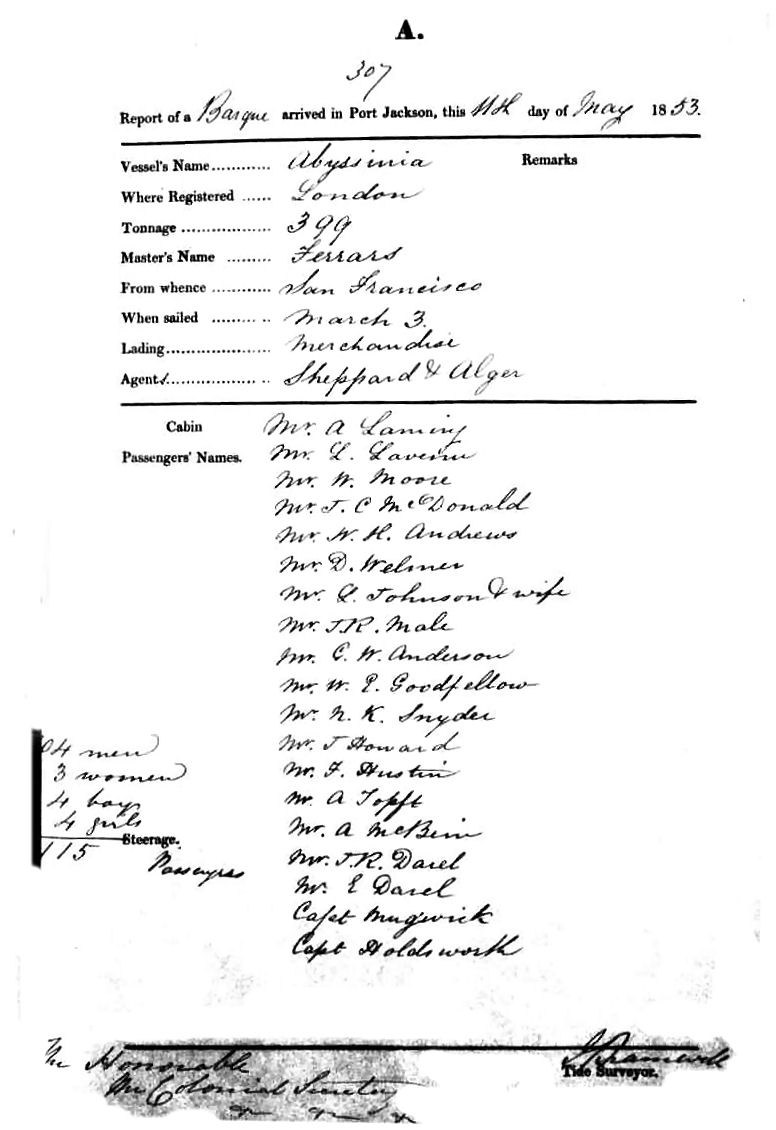 A.
307
Report of a Barque arrived in Port Jackson, this 11th day of May 1853.
Vessel's Name............ Abyssinia Remarks
Where Registered ...... London
Tonnage .................. 399
Master's Name ......... Ferrars
From whence ............ San Francisco
When sailed ......... .. March 3.
Lading..................... Merchandise
Agents.................. .. Sheppard & Alger
Cabin
Passengers' Names.
Mr. A Laming
Mr. L.
Mr. W. Moore
Mr. J. C McDonald
Mr. W. H. Andrews
Mr. D. Welmer
Mr. L. Johnson & wife
Mr. J.R. Male
Mr. C. W. Anderson
Mr. W. E. Goodfellow
Mr. N. K. Snyder
Mr. J Howard
Mr. F. Hustin
Mr. A Topft
Mr. A
Mr. J.R. Darel
Mr. E Darel
Capt Mugwick
Capt Holdsworth
04 men
3 women
4 boys
4 girls
Steerage.
115
Passengers
The Honorable
The Colonial Secretary
Tide Surveyor.